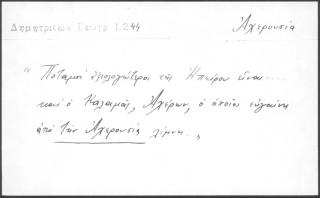 Δημητριέων Γεωγρ 1.244
Ἀχερουσία
"Ποταμοί ἀξιολογώτεροι τῆς Ἠπείρου εἶναι....
καί ὁ Καλαμᾶς, Ἀχέρων, ὁ ὁποῖος εὐγαίνει
ἀπό τὴν Ἀχερουσία λίμνη.,,